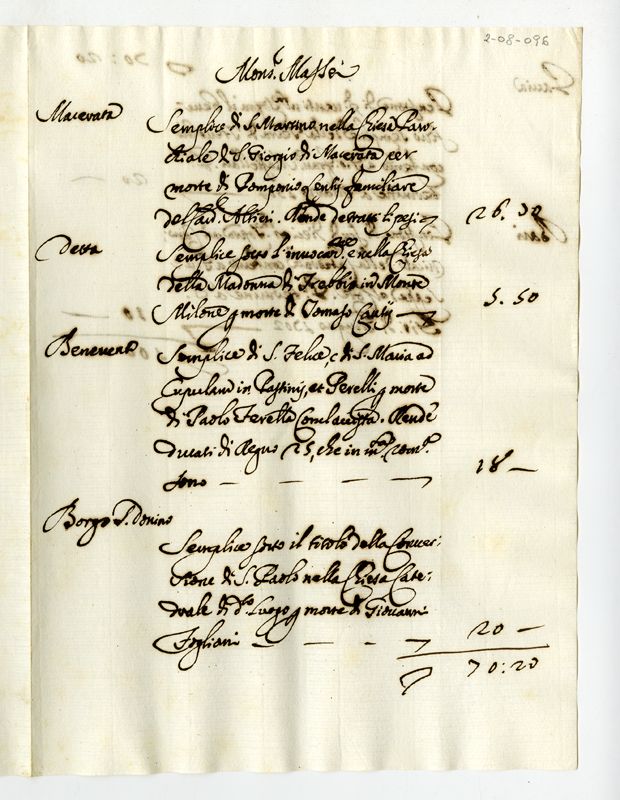 2-08-096
Mons.r Massei
Macerata
Semplice di S. Martino nella Chiesa Paro-
chiale di S. Giorgio di Macerata per
morte di Pomponio Lentij familiare
del Card. Altieri. Rende detratti li pesi 26. 30
Detta
Semplice sotto l'invocat.ne e nella Chiesa
della Madonna di Trebbio in Monte
Milone p morte di Tomaso 5. 50
Benevento
Semplice di S. Felice, e di S. Maria ad
in Pastinis, et Perelli p morte
di Paolo Ferella. Rende
ducati di Regno 25, che in m.ta rom.a
sono 18 —
Borgo S. Donino
Semplice sotto il titolo della Conver-
sione di S. Paolo nella Chiesa Cate-
drale di d.o Luogo p morte di Giovanni
Fogliani 20 —
70:20